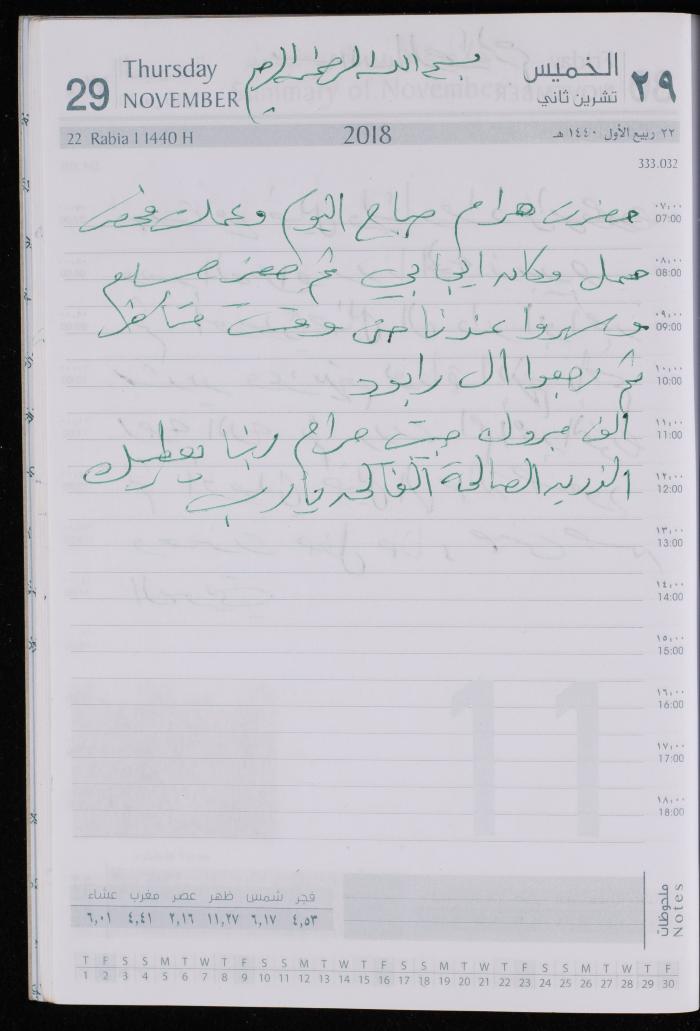 29 Thursday NOVEMBER
بسم الله الرحمن الرحيم
الخميس ٢٩
تشرين ثاني
22 Rabia I 1440 H 2018 ٢٢ ربيع الأول ١٤٤٠ هـ
333.032
٠٧,٠٠
07:00
حضرت مرام صباح اليوم وعملت فحص
٠٨,٠٠
08:00
حمل وكان ايجابي ثم حضر حسام
٠٩,٠٠
09:00
وسهروا عندنا حتى وقت متأخر
١٠,٠٠
10:00
ثم رجعوا الى رابود
١١,٠٠
11:00
الف مبروك حبيبتي مرام ربنا يعطيك
١٢,٠٠
12:00
الذرية الصالحة الفالحة يارب
١٣,٠٠
13:00
١٤,٠٠
14:00
١٥,٠٠
15:00
١٦,٠٠
16:00
١٧,٠٠
17:00
١٨,٠٠
18:00
11
فجر شمس ظهر عصر مغرب عشاء
٤,٥٣ ٦,١٧ ١١,٢٧ ٢,١٦ ٤,٤١ ٦,٠١
ملحوظات
Notes
T F S S M T W T F S S M T W T F S S M T W T F S S M T W T F
1 2 3 4 5 6 7 8 9 10 11 12 13 14 15 16 17 18 19 20 21 22 23 24 25 26 27 28 29 30